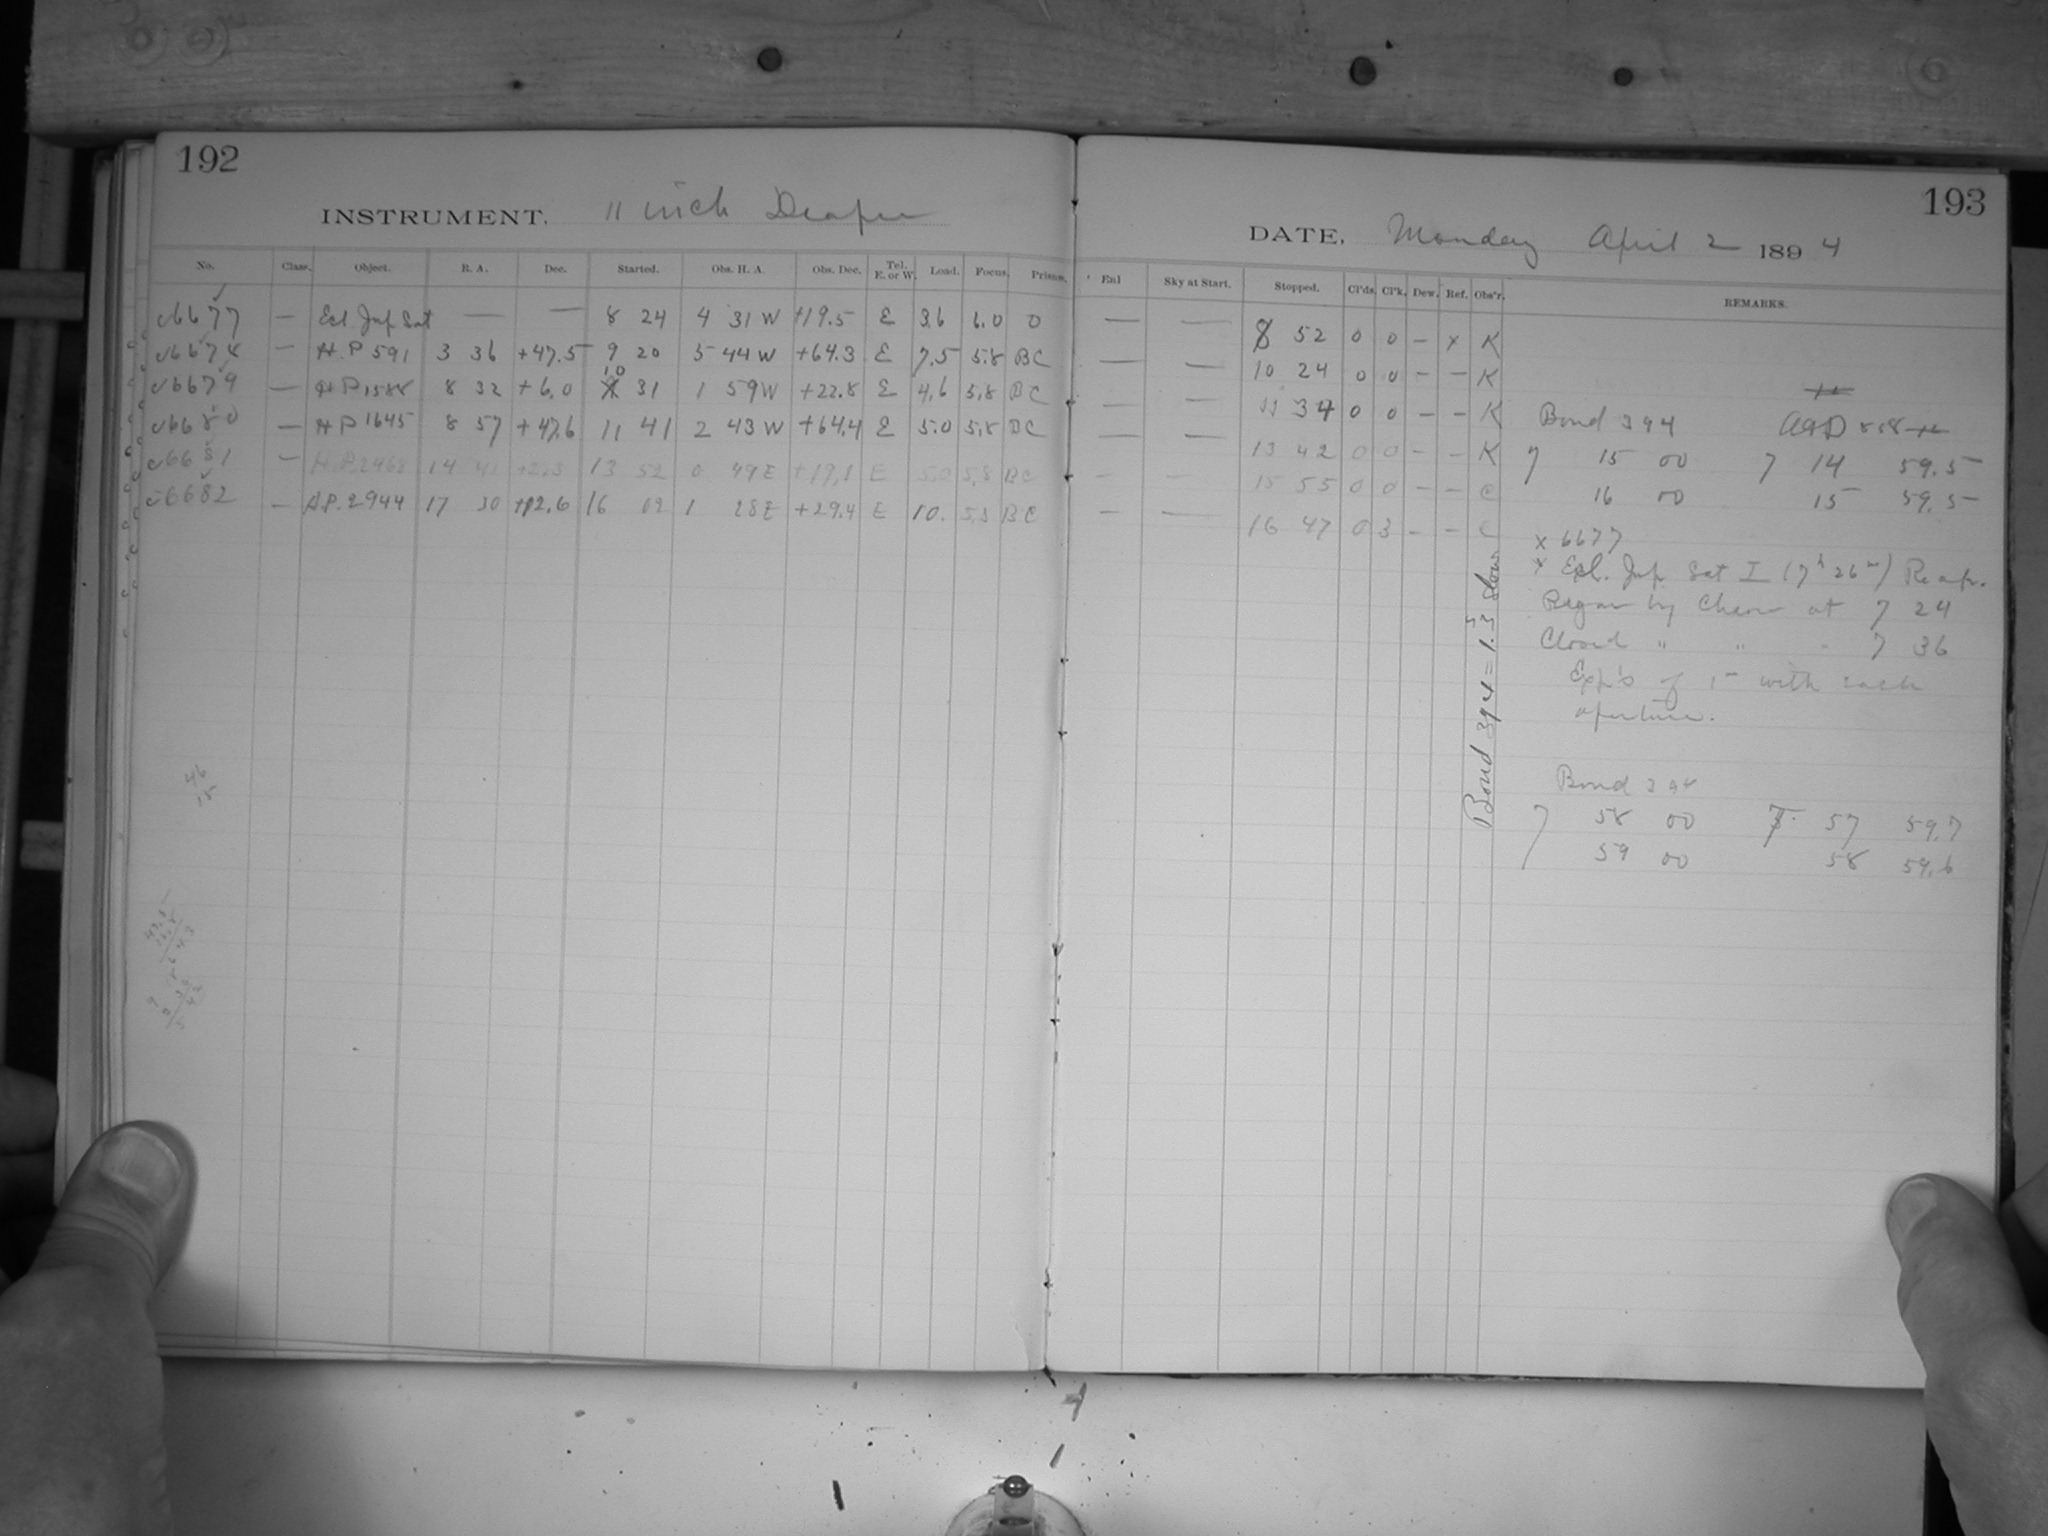 192
INSTRUMENT. 11 inch Draper
No. Class. Object. R. A. Dec. Started. Obs. H. A. Obs. Dec. Tel. E. or W. Load. Focus. Prisms.
c6677 — Ecl Jup Sat — — 8 24 4 31 W +19.5 E 3.6 6.0 0
c6678 — H.P 591 3 36 +47.5 9 20 5 44 W +64.3 E 7.5 5.8 BC
c6679 — H P 1588 8 32 +6.0 10 31 1 59 W +22.8 E 4.6 5.8 BC
c6680 — H P 1645 8 57 +47.6 11 41 2 43 W +64.4 E 5.0 5.8 BC
c6681 — H.P. 14 13 52 0 49 E +19.1 E 5.0 5.8 BC
c6682 — H.P. 2944 17 30 +12.6 16 02 1 28 E +29.4 E 10. 5.8 BC
46
15
193
DATE, Monday April 2 1894
Enl Sky at Start. Stopped. Cl'ds. Cl'k. Dew. Ref. Obs'r. REMARKS.
— — 8 52 0 0 – x K
— — 10 24 0 0 – – K
— — 11 34 0 0 – – K
— — 13 42 0 0 – – K
— — 15 55 0 0 – – C
— — 16 47 0 3 – – C
Bond 394
7 15 00 7 14 59.5
16 00 15 59.5
x 6677
x Ecl. Jup. Sat I (7h 26m) Reapr.
Began by Chron at 7 24
Closed " " " 7 36
Exp's of 1s with each
aperture.
Bond 394
7 58 00 7. 57 59.7
59 00 58 59.6
Bond 394 = 1.3s slow